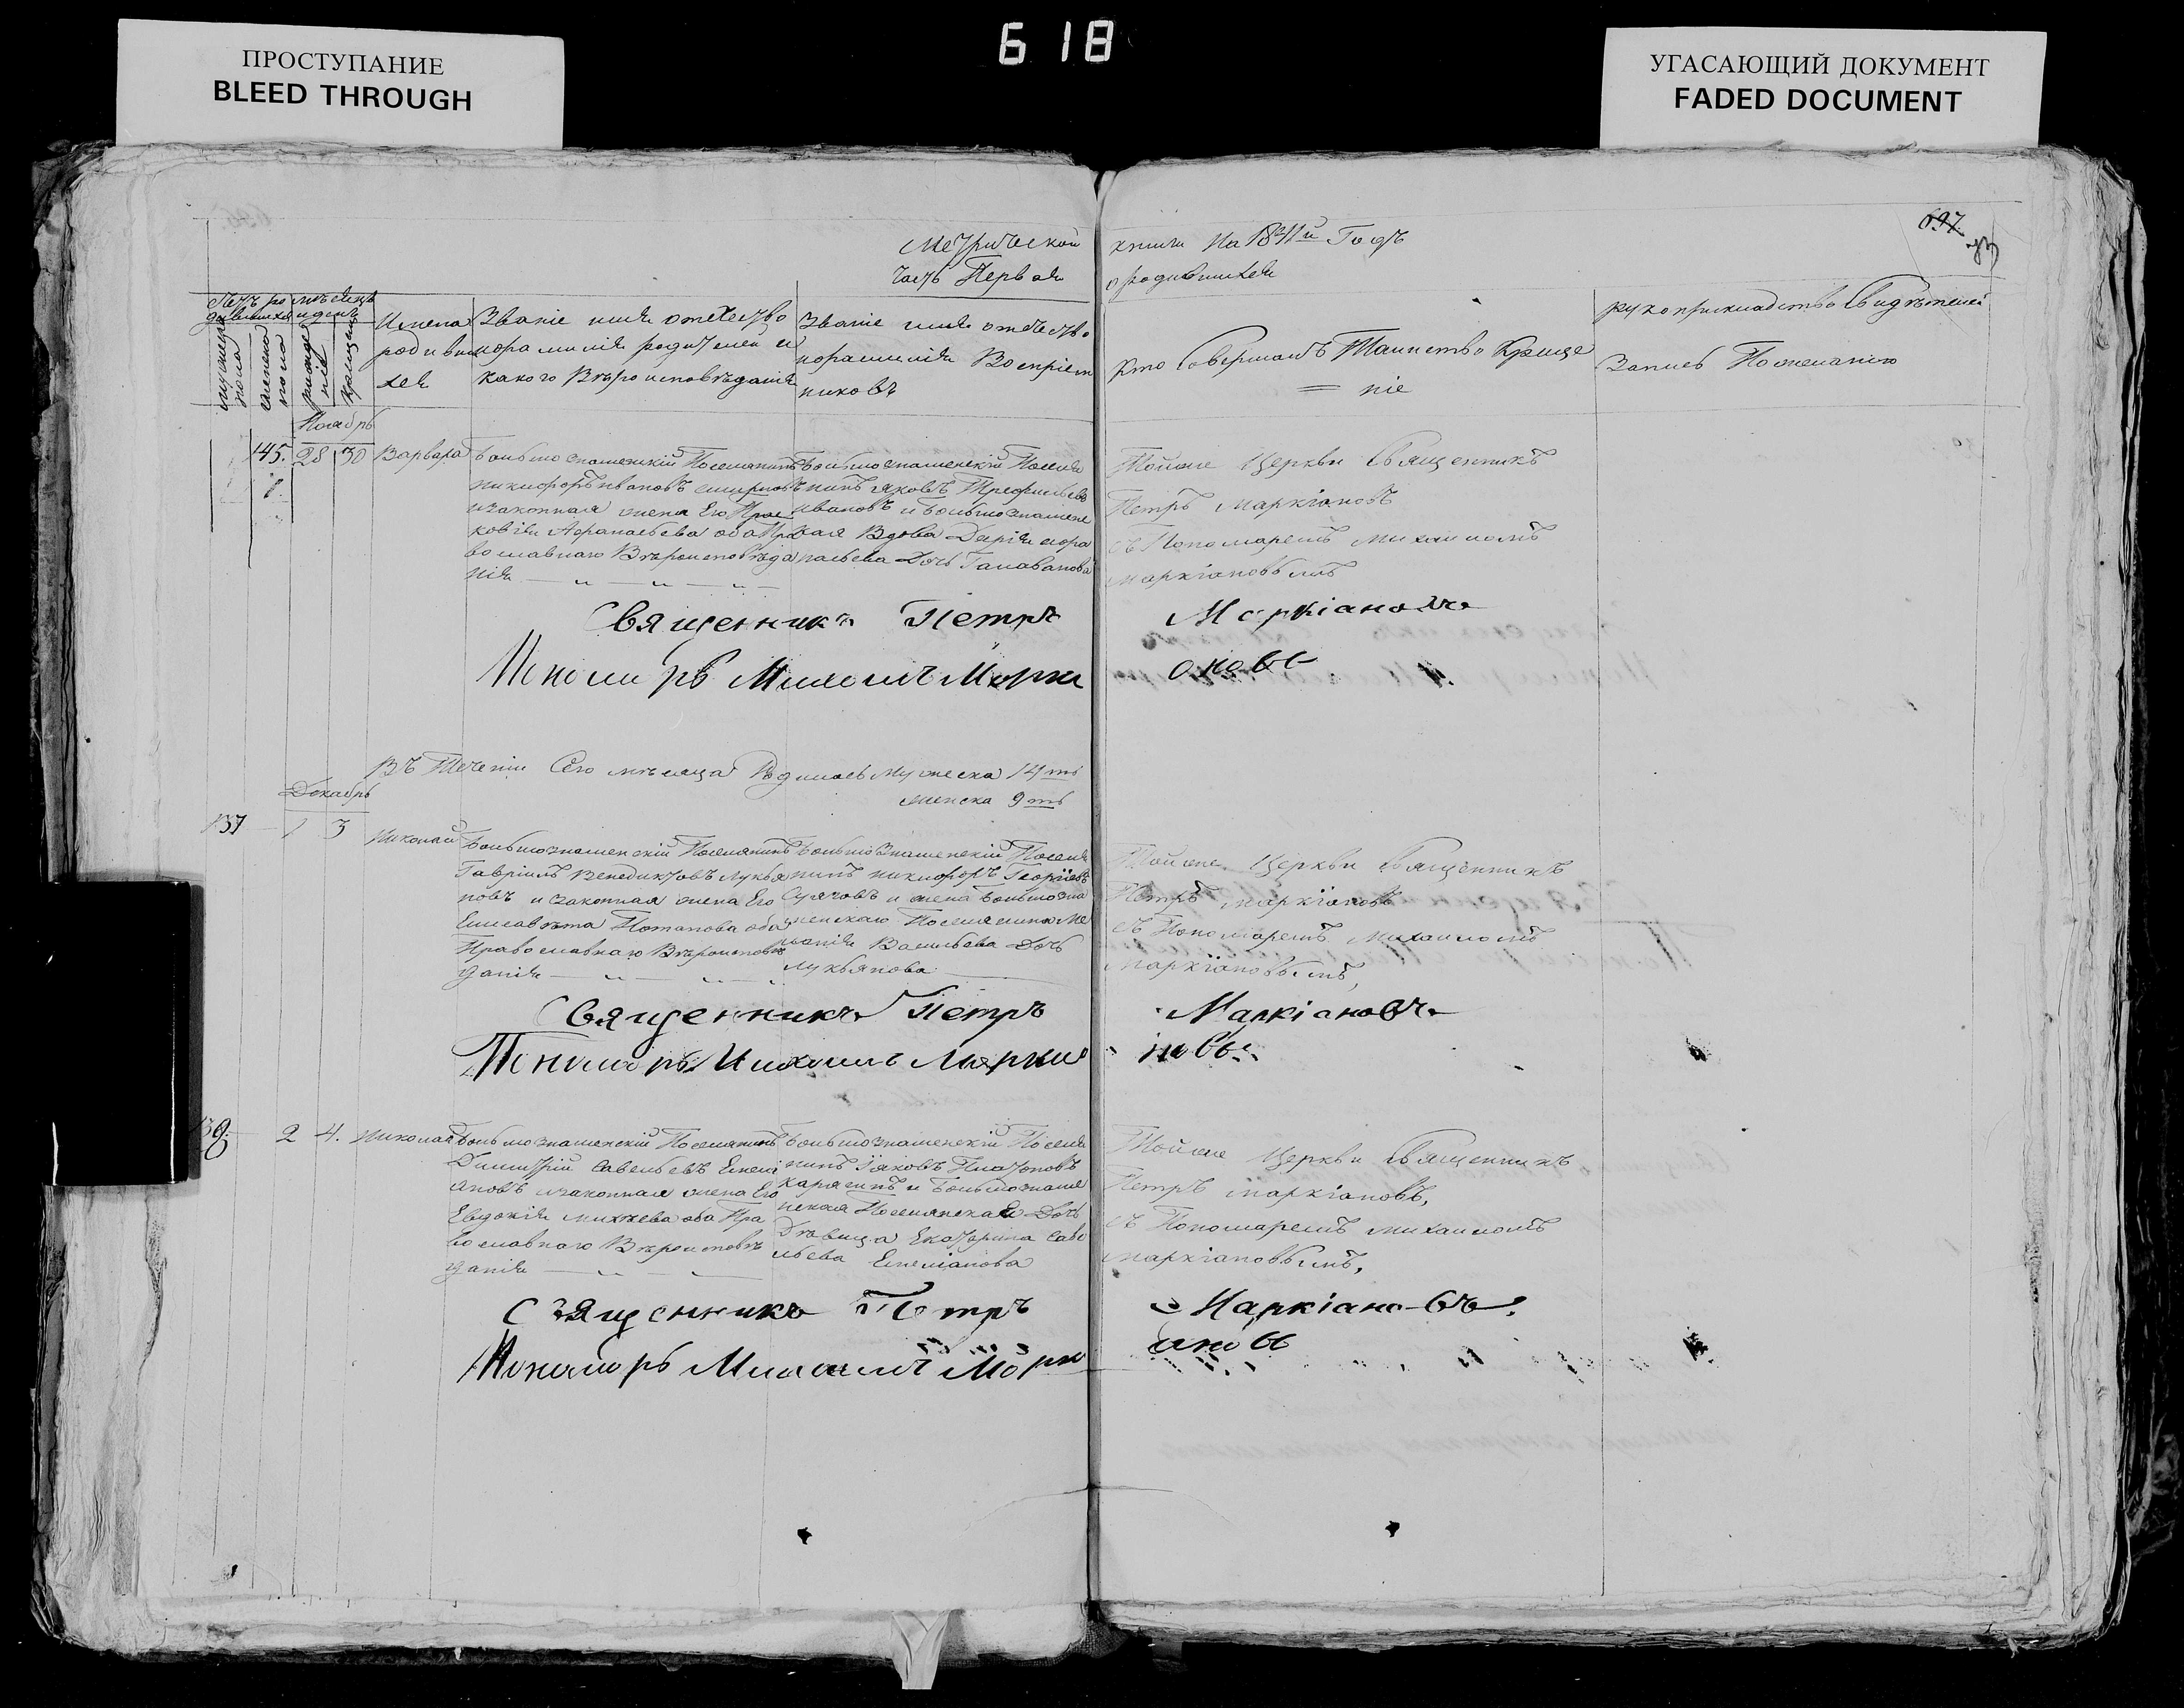 618
ПРОСТУПАНИЕ
BLEED THROUGH
УГАСАЮЩИЙ ДОКУМЕНТ
FADED DOCUMENT
697
Метрической книги На 18 й Годъ
часть Первая о родившихся
мужеска пола
женска пола
рожденіе
крещеніе
Имена родившихся
Званіе имя отечество
и фамилія родителей и
какого Вѣроисповѣданія
Званіе имя отечество
и фамилія Воспріем
никовъ
Кто Совершалъ Таинство Креще
= ніе
рукоприкладство Свидѣтелей
Запись По желанію
Ноябрь
145. 28 30 Варвара
Большознаменскій Поселянинъ
Никифоръ Ивановъ Смирновъ
и законная жена Его Прас
ковія Афанасьева оба Пра
вославнаго Вѣроисповѣда
нія
Большознаменскій Поселя
нинъ Яковъ Трофимовъ
Ивановъ и Большознаменс
кая Вдова Дарія Афана
сьева Дочь
Тойже Церкви Священникъ
Петръ Маркіановъ
съ Пономаремъ Михаиломъ
Маркіановымъ
Священникъ Петръ Маркіановъ
Пономарь Михаилъ Маркіановъ
Въ Теченіи Сего мѣсяца Родилось Мужеска 14ть
женска 9ть
Декабрь
137 1 3 Николай
Большознаменскій Поселянинъ
Гавріилъ Венедиктовъ Лукья
новъ и законная жена Его
Елисавета Потапова оба
Православнаго Вѣроисповѣ
данія
Большознаменскій Поселя
нинъ Никифоръ Георгіевъ
и жена Большозна
менскаго Поселянина Ме
ланія Васильева Дочь
Лукьянова
Тойже Церкви Священникъ
Петръ Маркіановъ
съ Пономаремъ Михаиломъ
Маркіановымъ,
Священникъ Петръ Маркіановъ
Пономарь Михаилъ Маркіановъ
138 2 4. Николай
Большознаменскій Поселянинъ
Димитрій Савельевъ Емелі
ановъ и законная жена Его
Евдокія Михѣева оба Пра
вославнаго Вѣроисповѣ
данія
Большознаменскій Поселя
нинъ Іяковъ Платоновъ
Карягинъ и Большознаме
нская Поселянская Дочь
Дѣвица Екатерина Саве
льева Емеліанова
Тойже Церкви Священникъ
Петръ Маркіановъ,
съ Пономаремъ Михаиломъ
Маркіановымъ,
Священникъ Петръ Маркіановъ.
Пономарь Михаилъ Маркіановъ